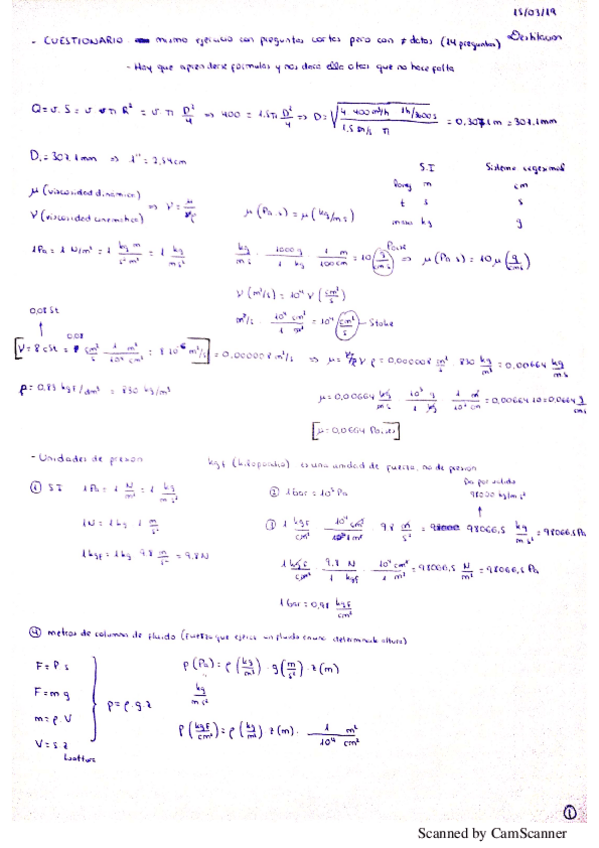 15/03/19
- CUESTIONARIO mismo ejercicio con preguntas cortas pero con ≠ datos (14 preguntas) Destilacion
- Hay que aprenderse formulas y nos dara otras que no hace falta
Q = v. S = v π R² = v π D²/4 ⇒ 400 = 1.5 π D²/4 ⇒ D = √(4 400 m³/h 1h/3600s / 1.5 m/s π) = 0,3071 m = 307.1mm
D. = 307.1mm ⇒ 1" = 2,54cm
S.I Sistema cegesimal
long m cm
t s s
masa kg g
μ (viscosidad dinamica)
ν (viscosidad cinematica) ⇒ ν = μ/ρ
μ (Pa.s) = μ (kg/m s)
1Pa = 1 N/m² = 1 kg m/s² m² = 1 kg/m s²
kg/m s · 1000 g/1 kg · 1 m/100 cm = 10 (g/cm s) Poise ⇒ μ (Pa s) = 10 μ (g/cm s)
ν (m²/s) = 10⁴ ν (cm²/s)
m²/s · 10⁴ cm²/1 m² = 10⁴ (cm²/s) - Stoke
0,08 St
0,08
[ν = 8 cSt = cm²/s 1 m²/10⁴ cm² = 8 10⁻⁶ m²/s] = 0,000008 m²/s ⇒ μ = ν ρ = 0,000008 m²/s 830 kg/m³ = 0,00664 kg/m s
ρ = 0,83 kgf/dm³ = 830 kg/m³
μ = 0,00664 kg/m s · 10³ g/1 kg · 1 m/10² cm = 0,00664 10 = 0,0664 g/cm s
[μ = 0,0664 Poises]
- Unidades de presion kgf (kilopondio) es una unidad de fuerza, no de presion
① S.I 1Pa = 1 N/m² = 1 kg/m s²
② 1bar = 10⁵ Pa
98000 kg/m s²
1N = 1 kg 1 m/s²
③ 1 kgf/cm² 10⁴ cm²/1 m² · 9.8 m/s² = 98066,5 kg/m s² = 98066,5 Pa
1kgf = 1kg 9.8 m/s² = 9.8 N
1 kgf/cm² · 9.8 N/1 kgf · 10⁴ cm²/1 m² = 98066,5 N/m² = 98066,5 Pa
1 bar = 0,98 kgf/cm²
④ metros de columna de fluido (fuerza que ejerce un fluido a una determinada altura)
F = P s
F = m g
m = ρ V
V = s z
p = ρ · g · z
p (Pa) = ρ (kg/m³) · g (m/s²) · z (m)
kg/m s²
p (kgf/cm²) = ρ (kg/m³) z (m) · 1/10⁴ m²/cm²
1
Scanned by CamScanner